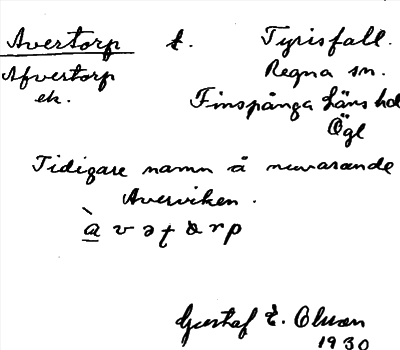 Avertorp t. Tyrisfall.
Afvertorp Regna sn.
ek. Finspånga Läns hd
Ögl
Tidigare namn å nuvarande
Averviken.
à v ə t ɷ r p
Gustaf E. Olsson
1930